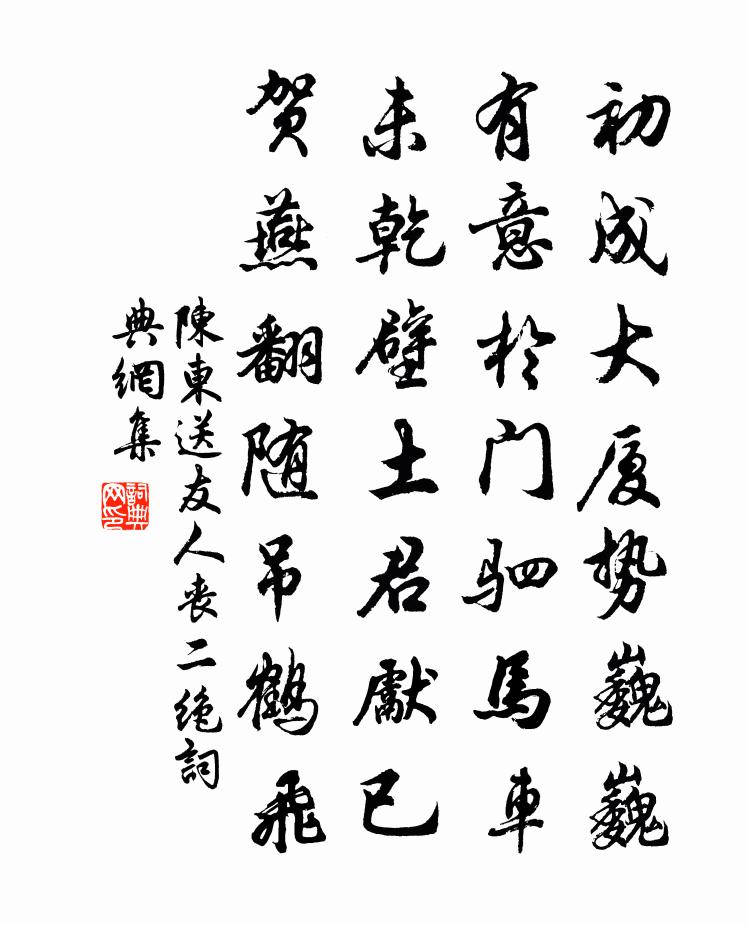 初成大厦势巍巍
有意於门驷馬車
未乾壁土君獻已
贺燕翻随吊鶴飛
陳東送友人丧二绝詞
典網集
詞典
网印